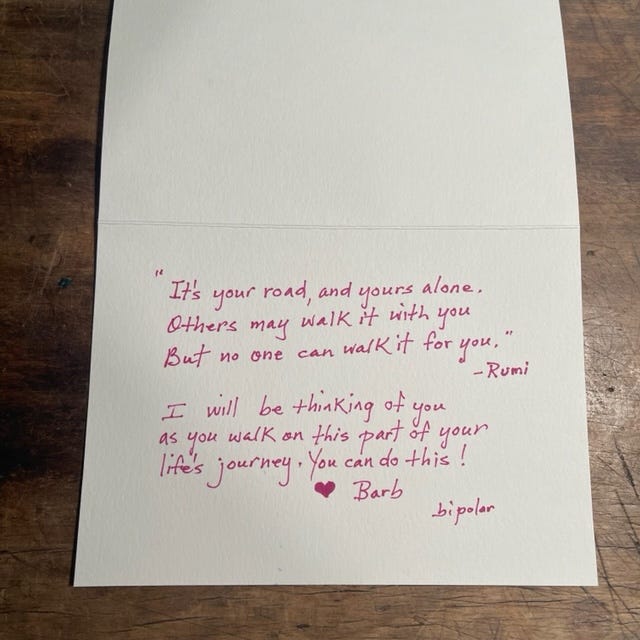 "It's your road, and yours alone.
Others may walk it with you
But no one can walk it for you."
-Rumi
I will be thinking of you
as you walk on this part of your
life's journey. You can do this!
♥ Barb
bipolar